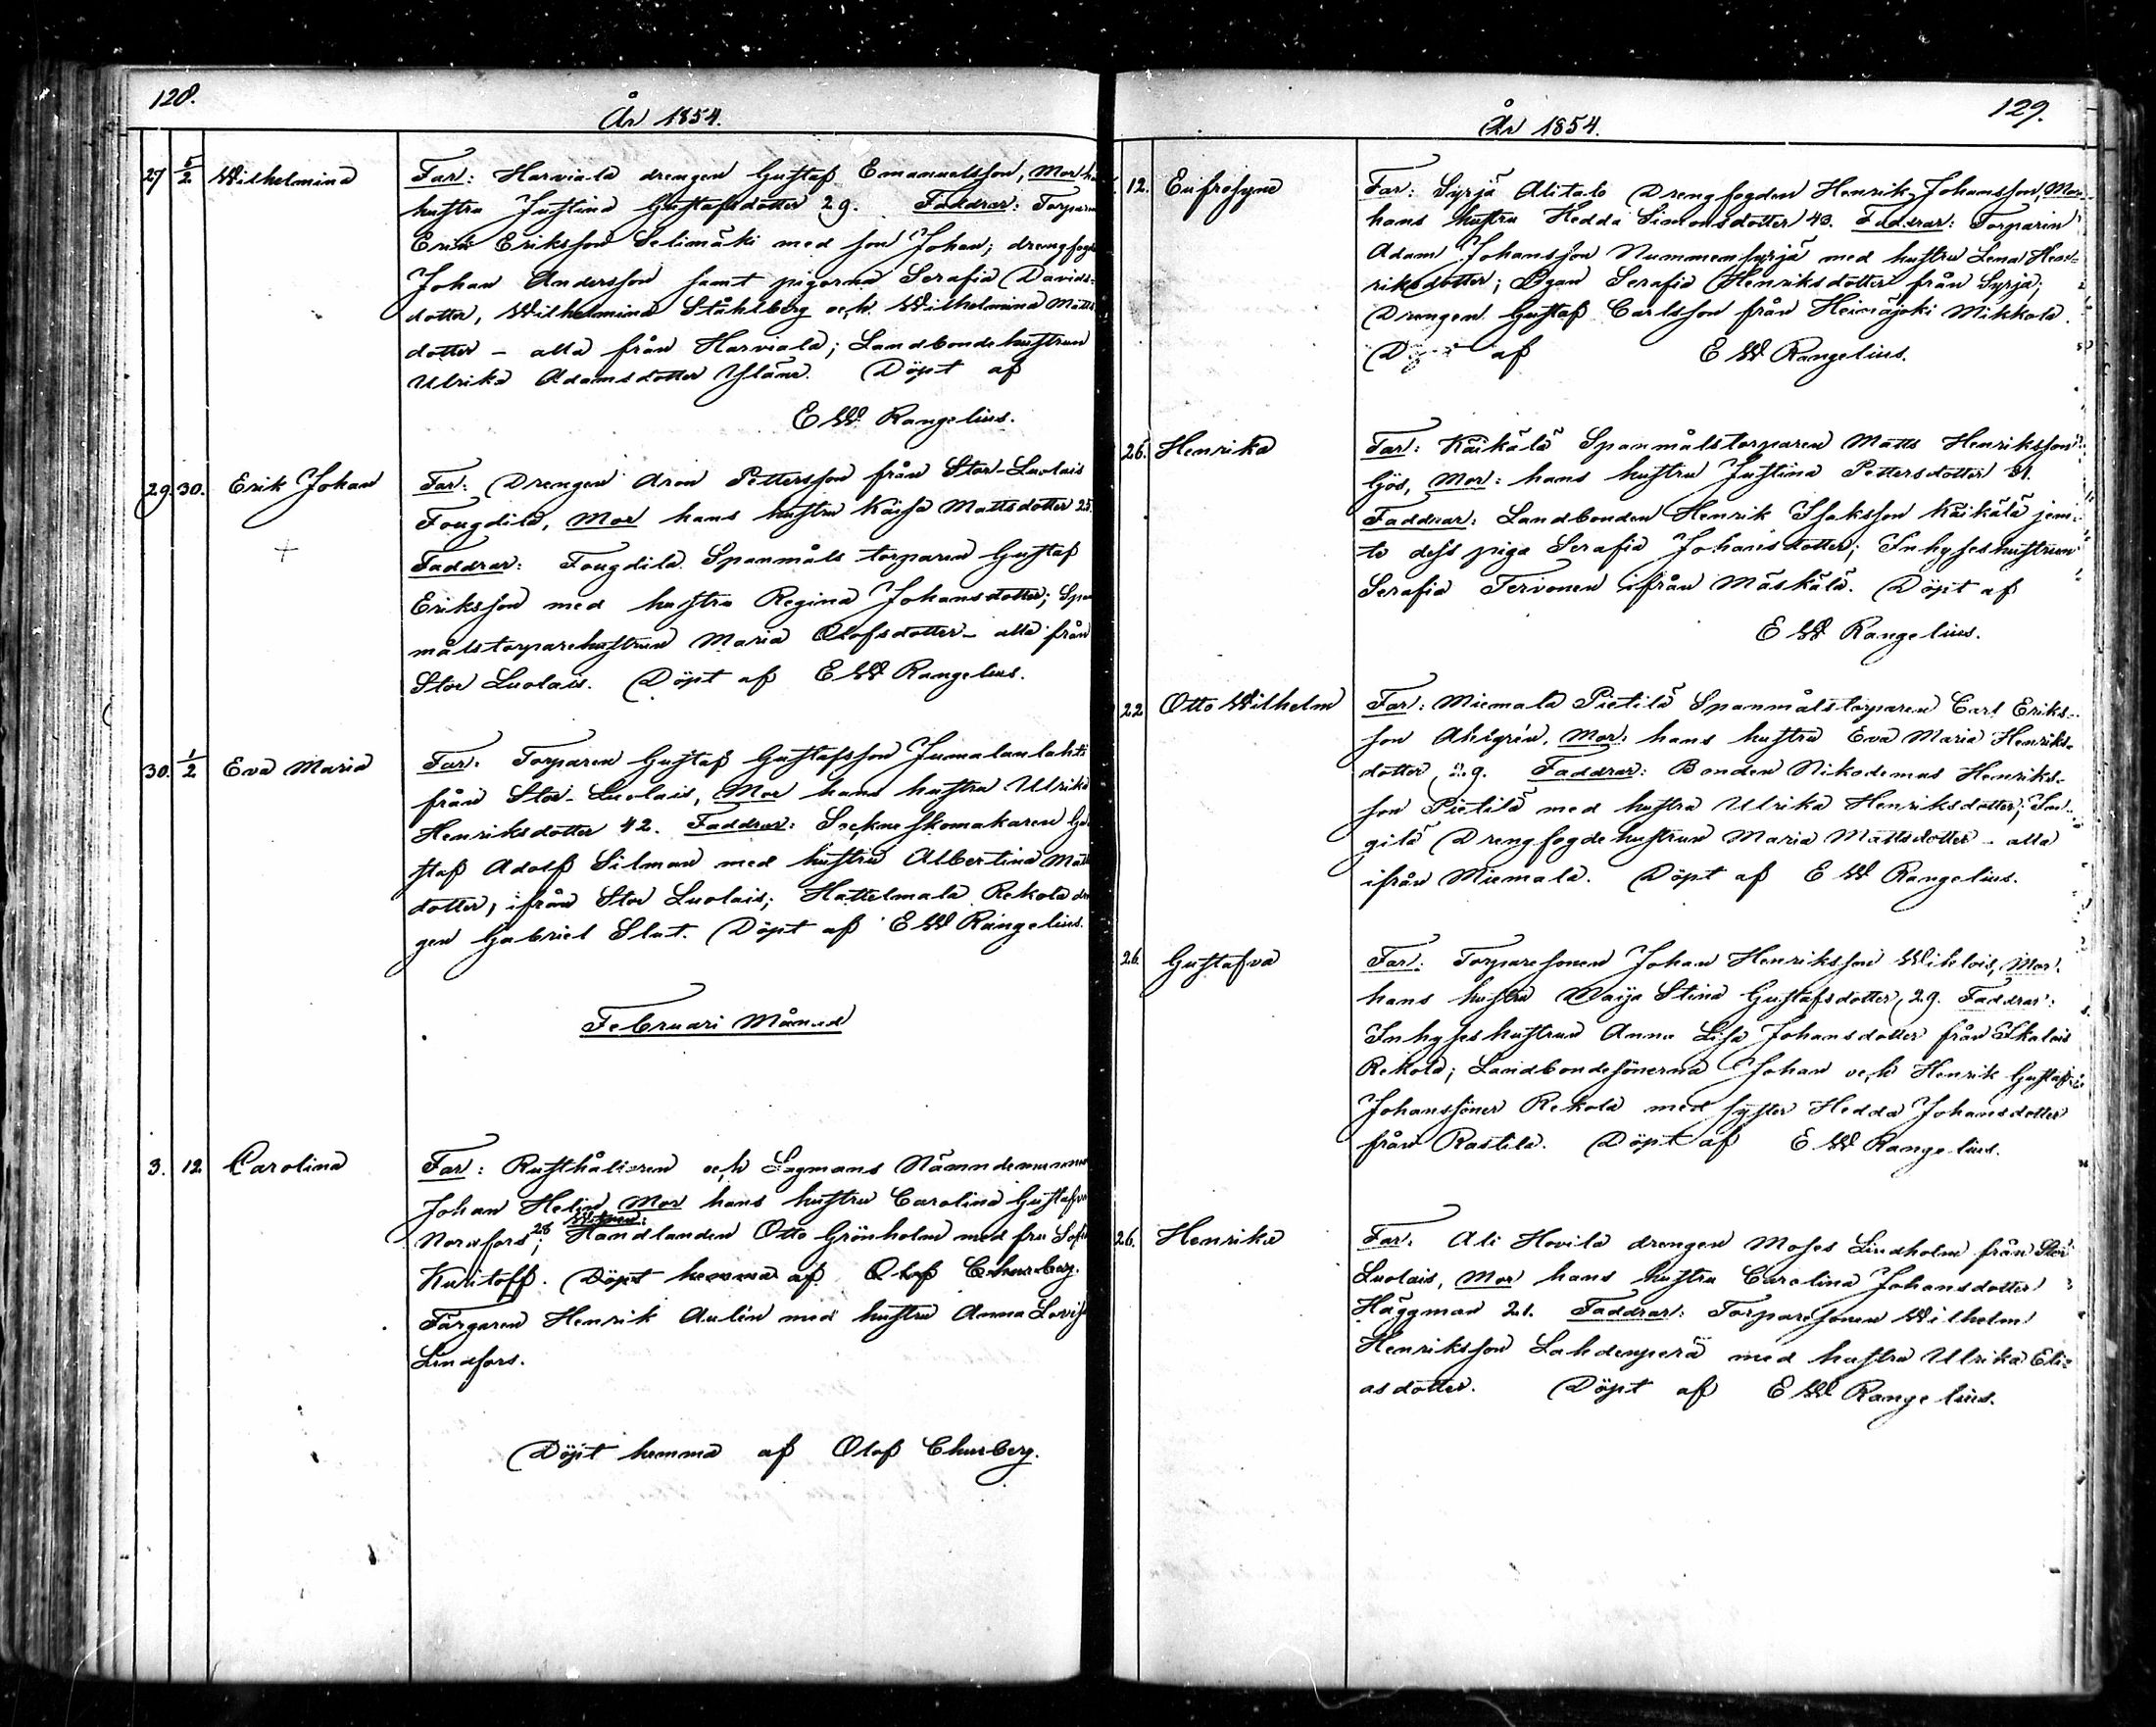 128.
År 1854.
27 5/2 Wilhelmina
Far: Harviala drengen Gustaf Emanuelsson, Mor
hustru Justina Gustafsdotter 29. Faddrar: Torparen
Erik Eriksson Selimäki med son Johan; drengfogd
Johan Andersson samt pigorna Serafia Davids-
dotter, Wilhelmina Ståhlberg och Wilhelmina Matts
dotter – alla från Harviala; Landbondehustrun
Ulrika Adamsdotter Yläne. Döpt af
E W Rangelius.
29. 30. Erik Johan
+
Far: Drengen Aron Pettersson från Stor-Luolais
Fougdila, Mor hans hustru Kaisa Mattsdotter 25.
Faddrar: Fougdila Spanmåls torparen Gustaf
Eriksson med hustru Regina Johansdotter; Span
målstorparehustrun Maria Olofsdotter – alla från
Stor Luolais. Döpt af E W Rangelius.
30. 1/2 Eva Maria
Far: Torparen Gustaf Gustafsson Jumalanlahti
från Stor-Luolais, Mor hans hustru Ulrika
Henriksdotter 42. Faddrar: Socknesskomakaren Gu
staf Adolf Silman med hustru Albertina Matts
dotter, ifrån Stor Luolais; Hattelmala Rekola dren
gen Gabriel Slat. Döpt af E W Rangelius.
Februari Månad
3. 12 Carolina
Far: Rusthållaren och Lagmans Nämndemannen
Johan Helin, Mor hans hustru Carolina Gustafva
Nordfors 28; Vittnen: Handlanden Otto Grönholm med fru Sofia
Kuritoff. Döpt hemma af Olof Churberg.
Färgaren Henrik Aulén med hustru Anna Lovisa
Lindfors.
Döpt hemma af Olof Churberg.
129.
År 1854.
12. Eufrosyne
Far: Syrjä Alitalo Drengfogden Henrik Johansson, Mor
hans hustru Hedda Simonsdotter 43. Faddrar: Torparen
Adam Johansson Nummensyrjä med hustru Lena Hen-
riksdotter; Pigan Serafia Henriksdotter från Syrjä;
Drengen Gustaf Carlsson från Heinäjoki Mikkola.
Döpt af E W Rangelius.
26. Henrika
Far: Käikälä Spanmålstorparen Matts Henriksson
Gös, Mor: hans hustru Justina Pettersdotter 31.
Faddrar: Landbonden Henrik Isaksson Käikälä jem-
te dess piga Serafia Johansdotter; Inhyseshustrun
Serafia Tervonen ifrån Mäskälä. Döpt af
E W Rangelius.
22 Otto Wilhelm
Far: Miemala Pietilä Spanmålstorparen Carl Eriks-
son Ahlgrén, Mor: hans hustru Eva Maria Henriks-
dotter, 29. Faddrar: Bonden Nikodemus Henriks-
son Pietilä med hustru Ulrika Henriksdotter; In-
gilä Drengfogdehustrun Maria Mattsdotter – alla
ifrån Miemala. Döpt af E W Rangelius.
26. Gustafva
Far: Torparesonen Johan Henriksson Wiklois, Mor:
hans hustru Maija Stina Gustafsdotter, 29. Faddrar:
Inhyseshustrun Anna Lisa Johansdotter från Ikalois
Rekola; Landbondesönerna Johan och Henrik Gustaf
Johanssöner Rekola med syster Hedda Johansdotter
från Rastila. Döpt af E W Rangelius.
26. Henrika
Far: Ali Hovila drengen Moses Lindholm från Stor
Luolais, Mor hans hustru Carolina Johansdotter
Häggman 21. Faddrar: Torparesonen Wilhelm
Henriksson Lahdenperä med hustru Ulrika Eli-
asdotter. Döpt af E W Rangelius.